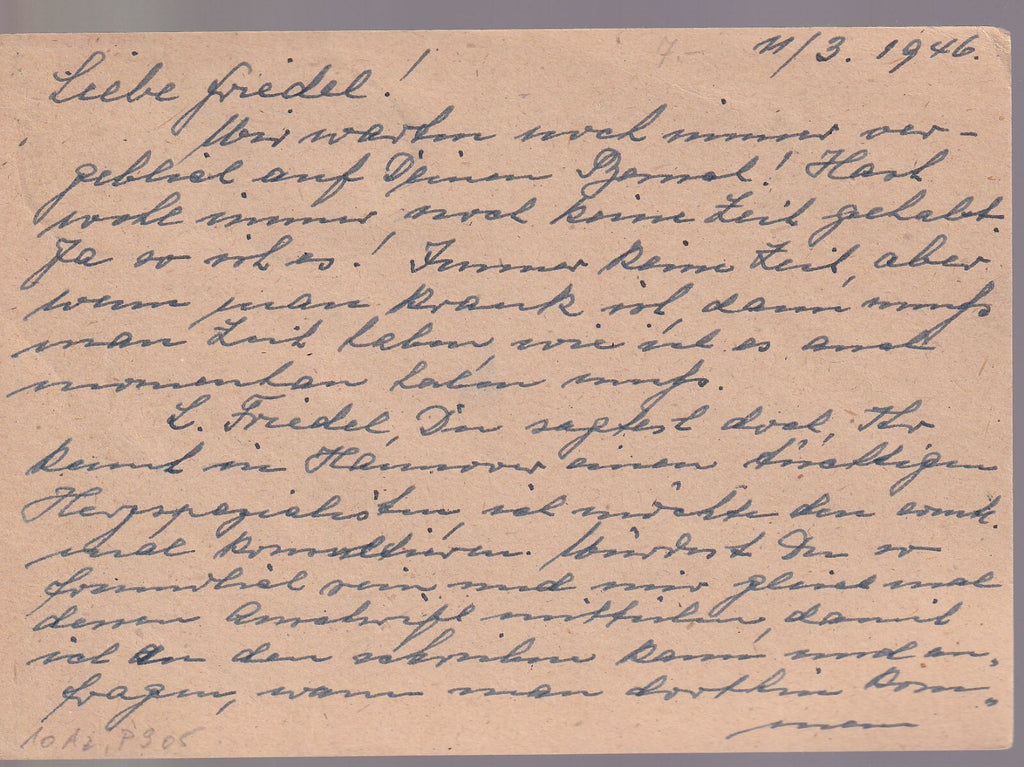 7.-
11/3. 1946.
Liebe Friedel!
Wir warten noch immer ver-
geblich auf Deinen Besuch! Hast
wohl immer noch keine Zeit gehabt.
Ja so ist es! Immer keine Zeit, aber
wenn man krank ist, dann muß
man Zeit haben, wie ich es auch
momentan haben muß.
L. Friedel, Du sagtest doch, Ihr
kennt in Hannover einen tüchtigen
Herzspezialisten, ich möchte den
mal konsultieren. Würdest Du so
freundlich sein und mir gleich mal
dessen Anschrift mitteilen, damit
ich an den schreiben kann und an-
fragen, wann man dorthin kom-
men
10.Az, P 905